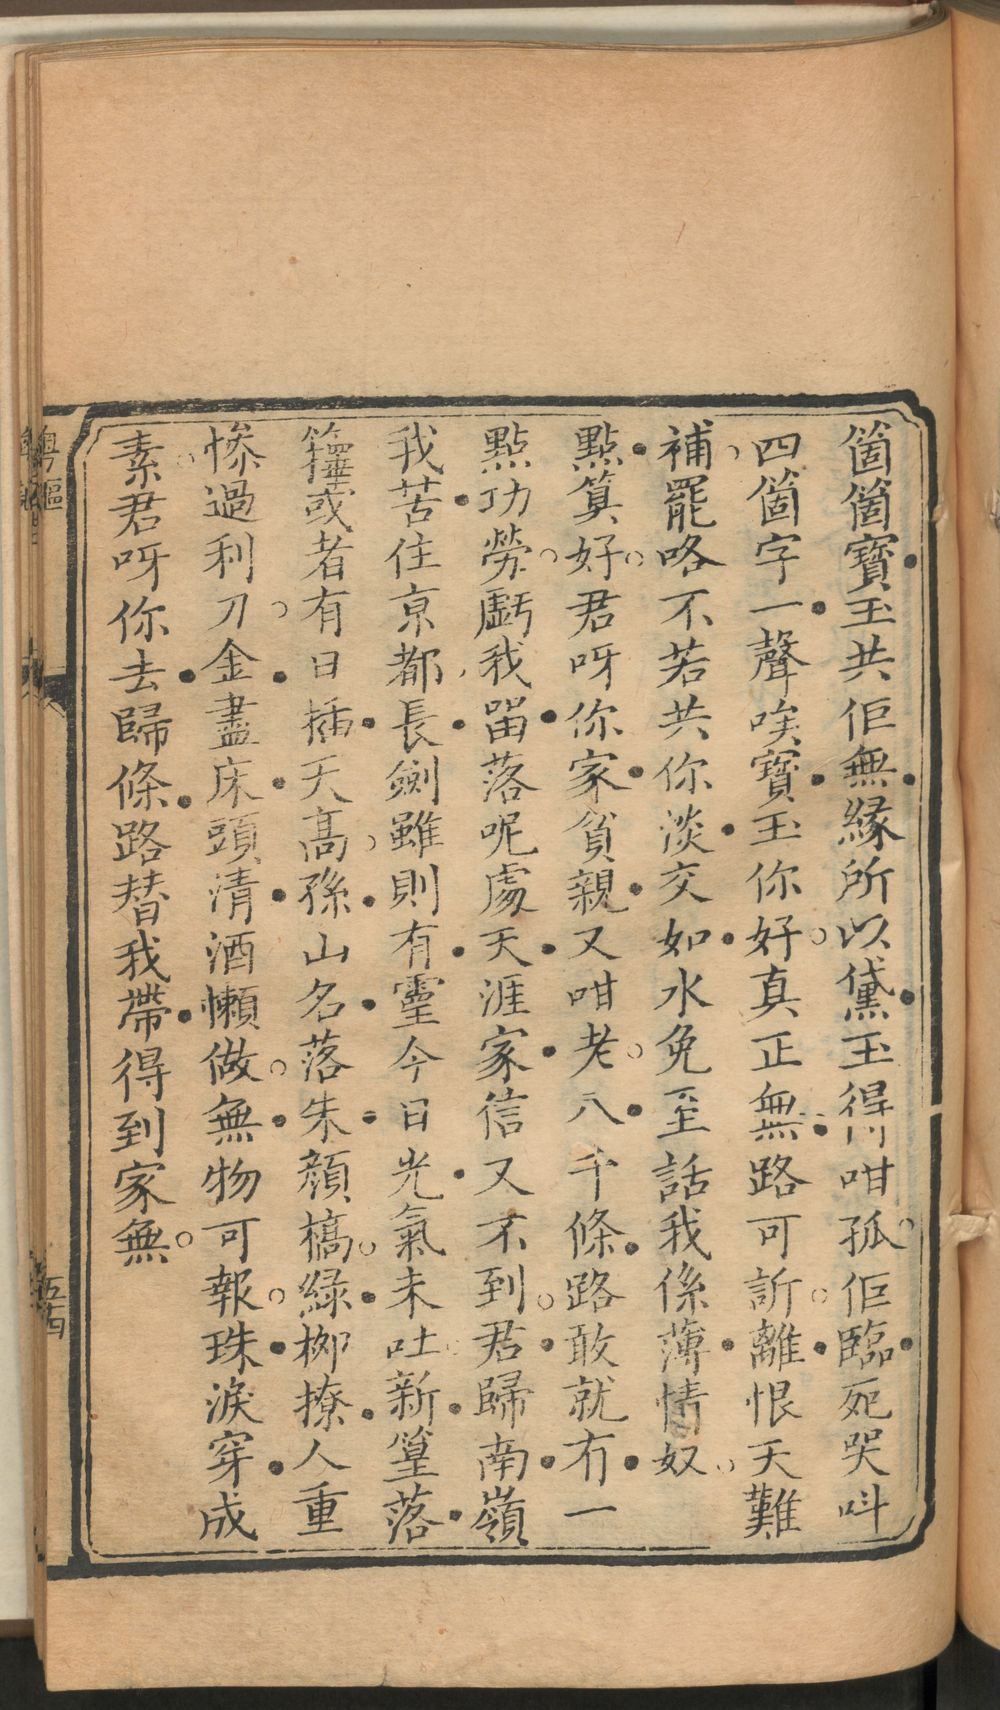 箇箇寶玉共佢無緣所以黛玉得咁孤佢臨死哭呌
四箇字一聲唉寶玉你好真正無路可訴離恨天難
補罷咯不若共你淡交如水免至話我係薄情奴
點算好君呀你家貧親又咁老八千條路敢就冇一
點功勞虧我留落呢處天涯家信又不到君歸南嶺
我苦住京都長劍雖則有靈今日光氣未吐新篁落
籜或者有日插天高孫山名落朱顏槁綠柳撩人重
慘過利刀金盡床頭清酒懶做無物可報珠淚穿成
素君呀你去歸條路替我帶得到家無
粵謳
五十四